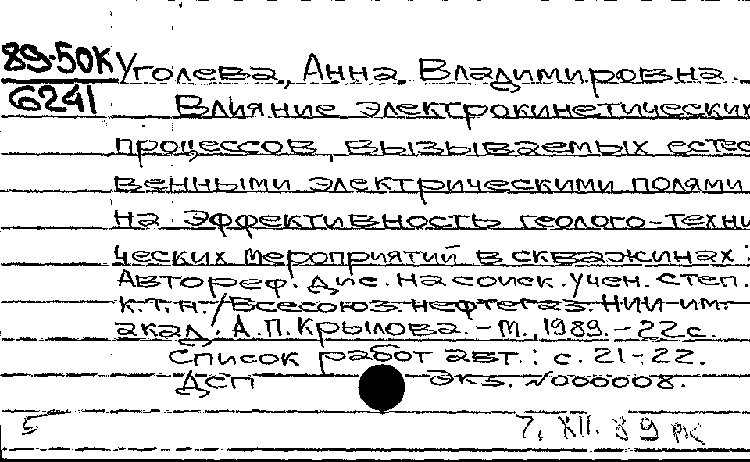 89-50К Уголева, Анна Владимировна.
6241 Влияние электрокинетических
процессов, вызываемых естес
венными электрическими полями
на эффективность геолого-техни
ческих мероприятий в скважинах:
Автореф. дис. на соиск. учен. степ.
к.т.н. / Всесоюз. нефтегаз. НИИ им.
акад. А.П. Крылова. - М., 1989. - 22 с.
Список работ авт.: с. 21-22.
ДСП Экз. №000008.
5 7. XII. 89